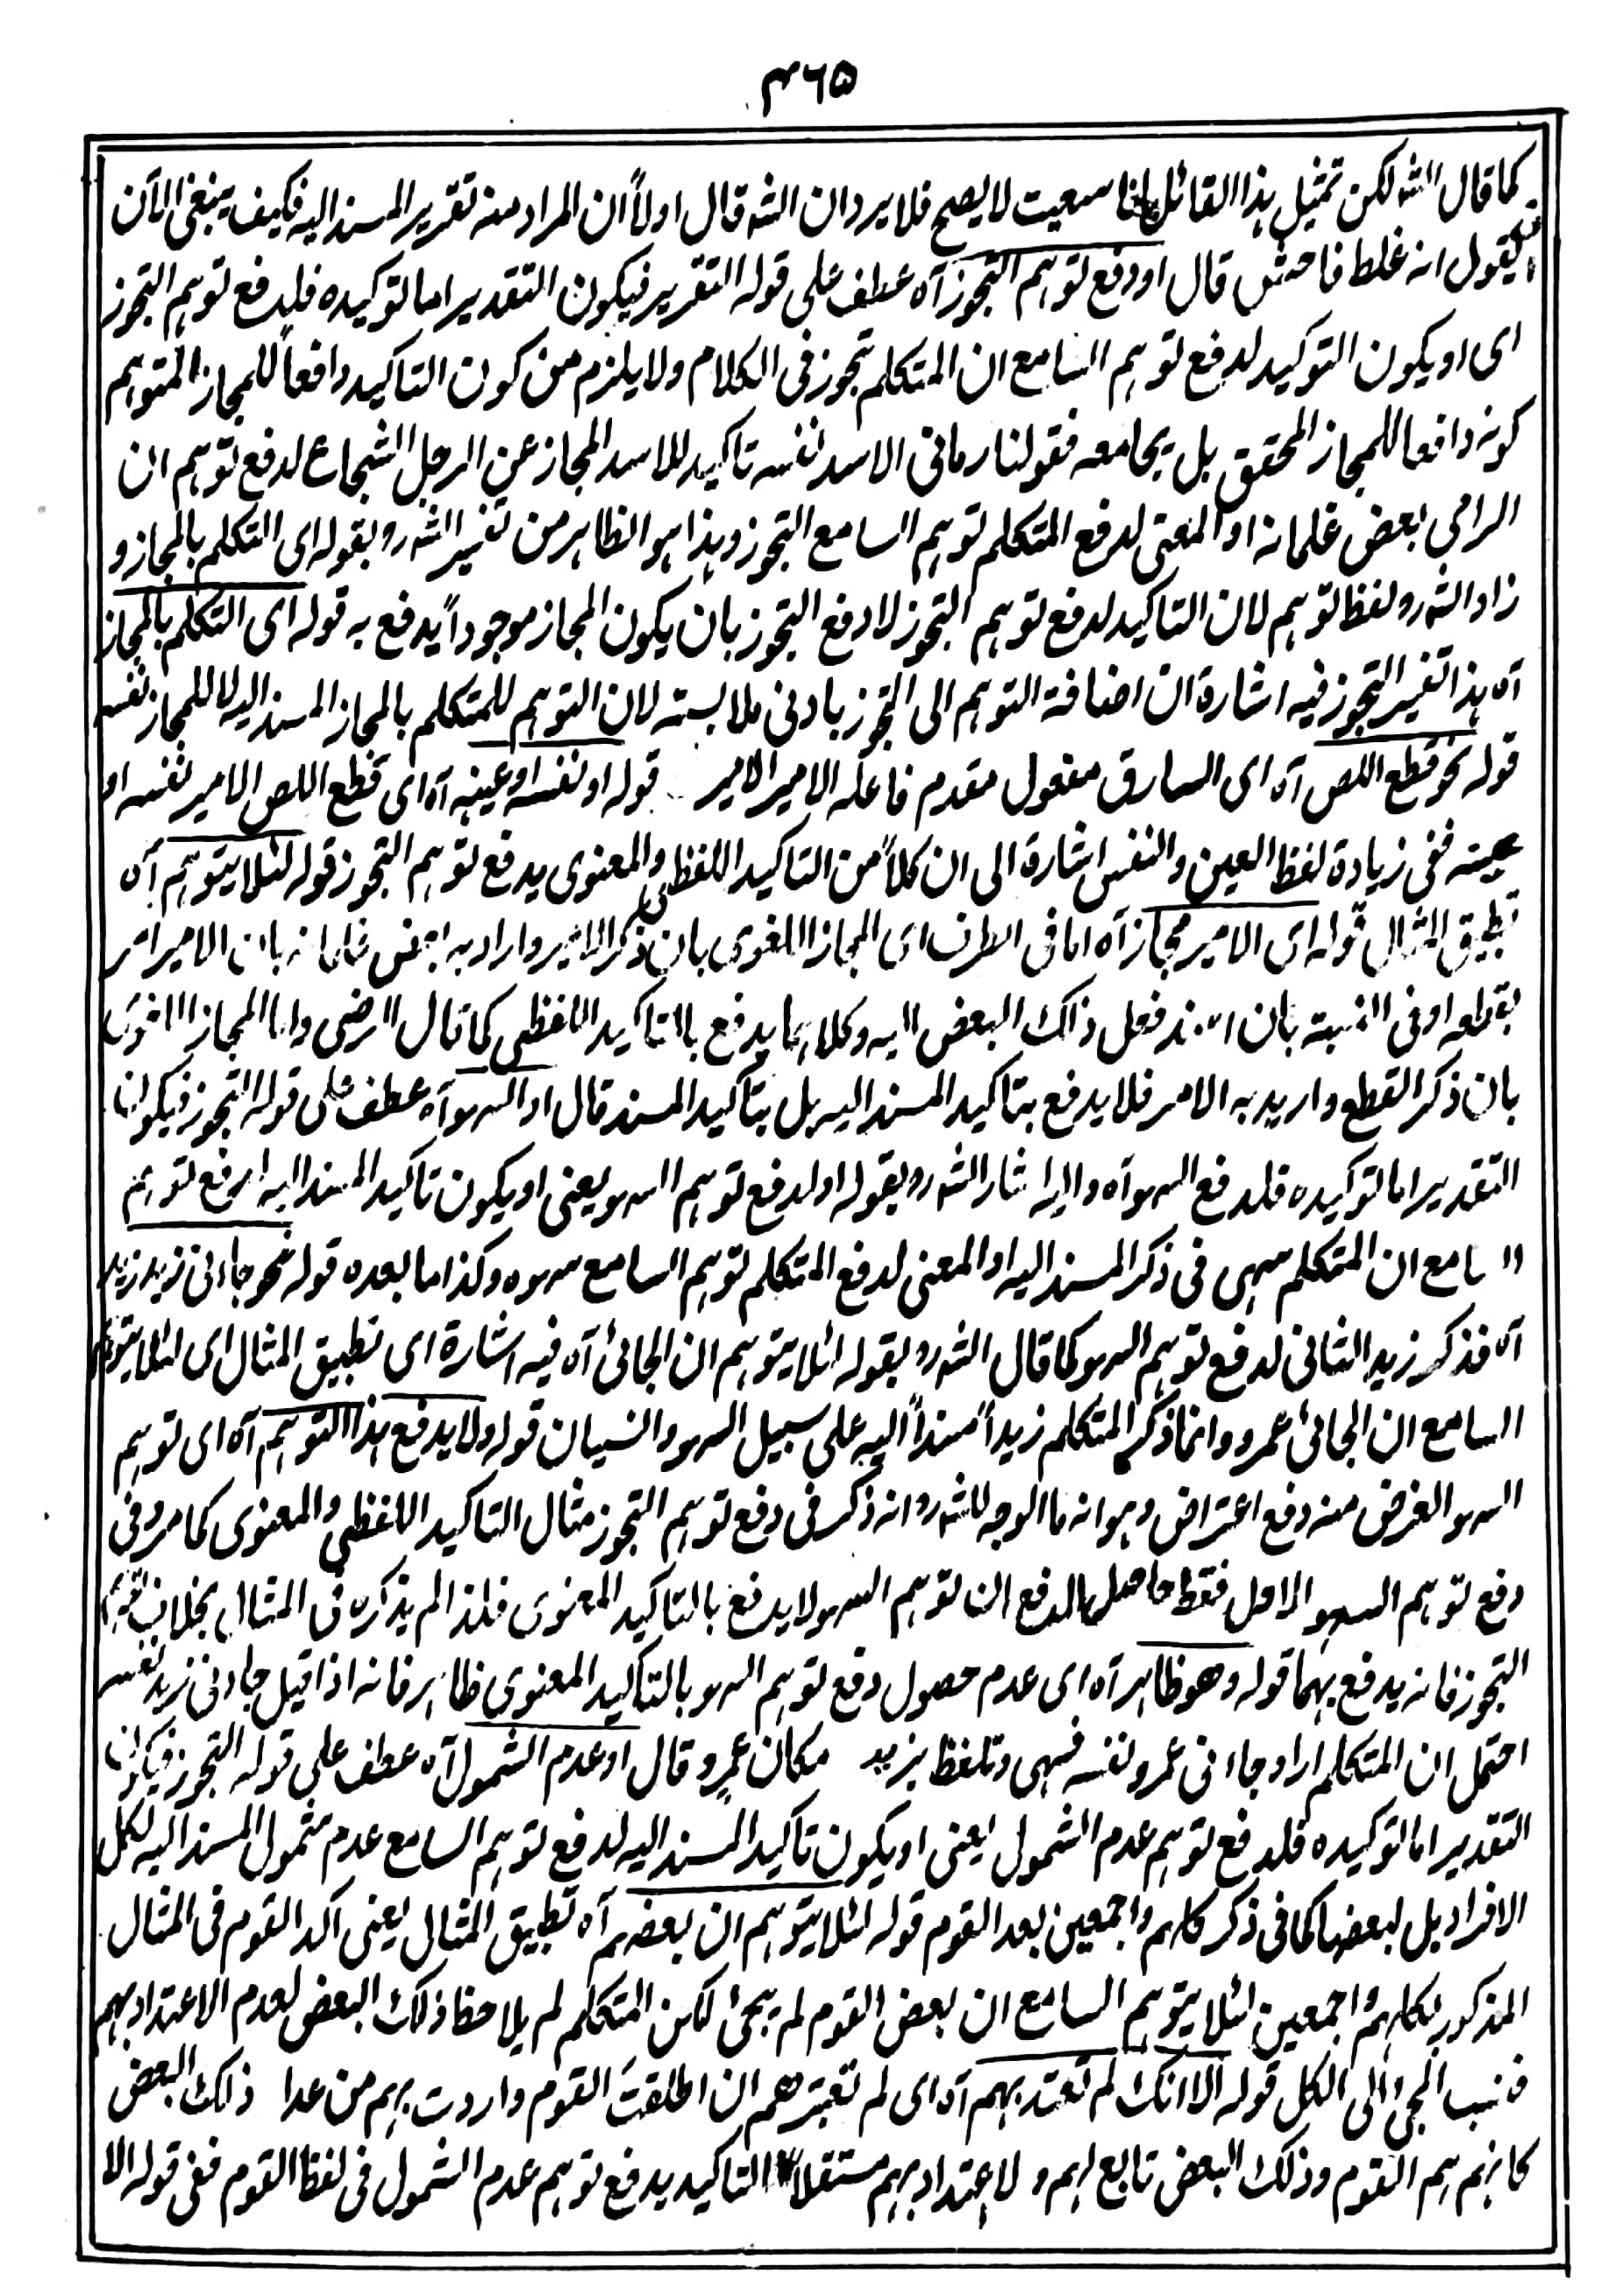 ۴۶۵
كما قال الشه لكن تمثيل هذا القائل بانا سعيت لا يصح فلا يرد ان الشه قال اولاً ان المراد منه تقرير المسند اليه فكيف ينبغى الآن
يقول انه غلط فاحش قال او دفع توهم التجوز آه عطف على قوله التقرير فيكون التقدير اما توكيده فلدفع توهم التجوز
اى او يكون التوكيد لدفع توهم السامع ان المتكلم تجوز فى الكلام ولا يلزم من كون التاكيد دافعاً للمجاز المتوهم
كونه دافعا للمجاز المحقق بل يجامعه فقولنا رمانى الاسد نفسه تاكيد للاسد المجاز عن الرجل الشجاع لدفع توهم ان
الرامى بعض غلمانه او المعنى لدفع المتكلم توهم السامع التجوز وهذا هو الظاهر من تفسير الشه رو بقوله اى التكلم بالمجاز و
زاد الشه رو لفظ توهم لان التاكيد لدفع توهم التجوز لا دفع التجوز بان يكون المجاز موجوداً يدفع به قوله اى التكلم بالمجاز
آه هذا تفسير التجوز فيه اشارة ان اضافة التوهم الى التجوز بادنى ملابسته لان التوهم للمتكلم بالمجاز المسند اليه لا للمجاز نفسه
قوله نحو قطع اللص آه اى السارق مفعول مقدم فاعله الامير الامير قوله او نفسه او عينه آه اى قطع اللص الامير نفسه او
عينه ففى زيادة لفظ العين والنفس اشارة الى ان كلاً من التاكيد اللفظى والمعنوى يدفع توهم التجوز قوله لئلا يتوهم آه
تطبيق المثال قوله اى الامير مجاز آه اما فى الطرف اى المجاز اللغوى بان ذكر الامير واراد به بعض غلمانه بان الامير امر
بقطعه او فى النسبة بان اسند فعل ذلك البعض اليه وكلاهما يدفع بالتاكيد اللفظى كما قال الرضى واما المجاز اللغوى
بان ذكر القطع واريد به الامر فلا يدفع بتاكيد المسند اليه بل بتاكيد المسند قال او السهو آه عطف على قوله التجوز فيكون
التقدير اما توكيده فلدفع السهو آه واليه اشار الشه رو بقوله او لدفع توهم السهو يعنى او يكون تاكيد المسند اليه لدفع توهم
السامع ان المتكلم سهى فى ذكر المسند اليه او المعنى لدفع المتكلم توهم السامع سهوه وكذا ما بعده قوله نحو جاءنى زيد زيد
آه فذكر زيد الثانى لدفع توهم السهو كما قال الشه رو بقوله لئلا يتوهم ان الجائى آه فيه اشارة اى تطبيق المثال اى لئلا يتوهم
السامع ان الجائى عمرو وانما ذكر المتكلم زيداً مسنداً اليه على سبيل السهو والنسيان قوله ولا يدفع هذا التوهم آه اى توهم
السهو الغرض منه دفع اعتراض وهو انه ما الوجه للشه رو انه ذكر فى دفع توهم التجوز مثال التاكيد اللفظى والمعنوى كما مر وفى
دفع توهم السهو الاول فقط حاصل الدفع ان توهم السهو لا يدفع بالتاكيد المعنوى فلذا لم يذكره فى المثال بخلاف توهم
التجوز فانه يدفع بهما قوله وهو ظاهر آه اى عدم حصول دفع توهم السهو بالتاكيد المعنوى ظاهر فانه اذا قيل جاءنى زيد نفسه
احتمل ان المتكلم اراد جاءنى عمرو نفسه فسهى وتلفظ بزيد مكان عمرو قال او عدم الشمول آه عطف على قوله التجوز فيكون
التقدير اما توكيده فلدفع توهم عدم الشمول يعنى او يكون تاكيد المسند اليه لدفع توهم السامع عدم شمول المسند اليه لكل
الافراد بل لبعضها كما فى ذكر كلهم واجمعين بعد القوم قوله لئلا يتوهم ان بعضهم آه تطبيق المثال يعنى اكد القوم فى المثال
المذكور بكلهم واجمعين لئلا يتوهم السامع ان بعض القوم لم يجئ لكن المتكلم لم يلاحظ ذلك البعض لعدم الاعتداد بهم
فنسب المجئ الى الكل قوله الا انك لم تعتد بهم آه اى لم تعتبرهم ان اطلقت القوم واردت بهم من عدا ذلك البعض
كانهم هم القوم وذلك البعض تابع لهم و لا اعتداد بهم مستقلاً التاكيد يدفع توهم عدم الشمول فى لفظ القوم ففى قوله الا